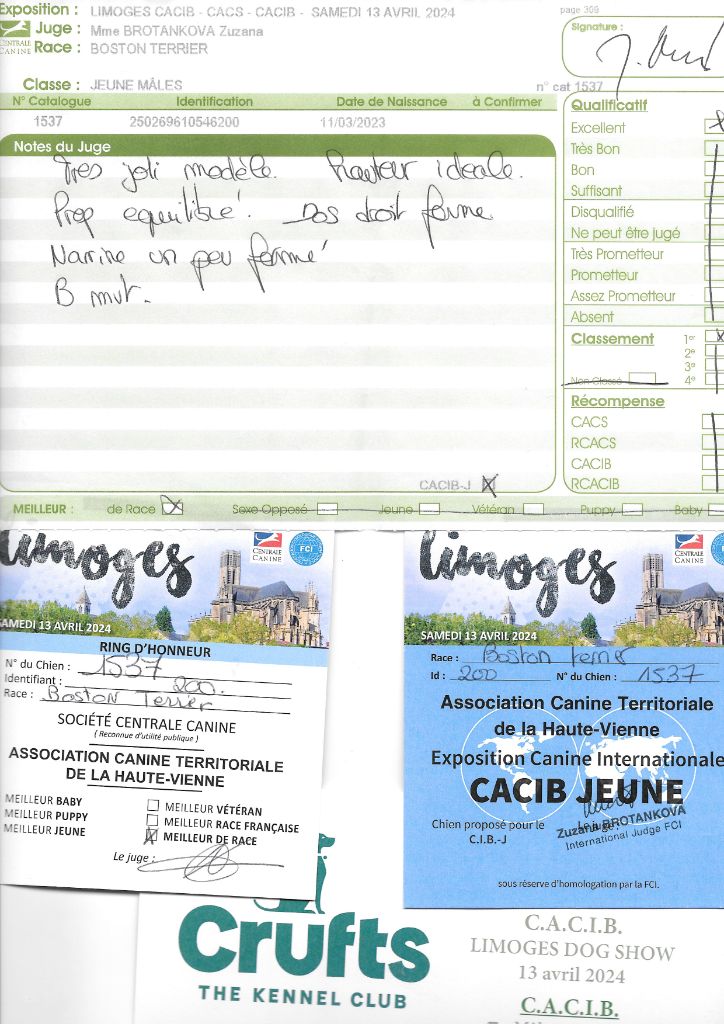 Exposition : LIMOGES CACIB - CACS - CACIB - SAMEDI 13 AVRIL 2024
page 309
Juge : Mme BROTANKOVA Zuzana
Race : BOSTON TERRIER
CENTRALE CANINE
Signature :
Classe : JEUNE MÂLES
n° cat 1537
N° Catalogue Identification Date de Naissance à Confirmer
1537 250269610546200 11/03/2023
Notes du Juge
Très joli modèle. Hauteur idéale.
Prop equilibré. Dos droit ferme
Narrine un peu fermé
B mvt.
CACIB-J
Qualificatif
Excellent
Très Bon
Bon
Suffisant
Disqualifié
Ne peut être jugé
Très Prometteur
Prometteur
Assez Prometteur
Absent
Classement 1er
2e
3e
Non Classé 4e
Récompense
CACS
RCACS
CACIB
RCACIB
MEILLEUR : de Race Sexe Opposé Jeune Vétéran Puppy Baby
limoges
CENTRALE CANINE
FCI
SAMEDI 13 AVRIL 2024
RING D'HONNEUR
N° du Chien : 1537
Identifiant : 200.
Race : Boston Terrier
SOCIÉTÉ CENTRALE CANINE
( Reconnue d'utilité publique )
ASSOCIATION CANINE TERRITORIALE
DE LA HAUTE-VIENNE
MEILLEUR BABY MEILLEUR VÉTÉRAN
MEILLEUR PUPPY MEILLEUR RACE FRANÇAISE
MEILLEUR JEUNE MEILLEUR DE RACE
Le juge :
limoges
CENTRALE CANINE
FCI
SAMEDI 13 AVRIL 2024
Race : Boston terrier
Id : 200 N° du Chien : 1537
Association Canine Territoriale
de la Haute-Vienne
Exposition Canine Internationale
CACIB JEUNE
Chien proposé pour le
C.I.B.-J
Zuzana BROTANKOVA
International Judge FCI
sous réserve d'homologation par la FCI.
Crufts
THE KENNEL CLUB
C.A.C.I.B.
LIMOGES DOG SHOW
13 avril 2024
C.A.C.I.B.